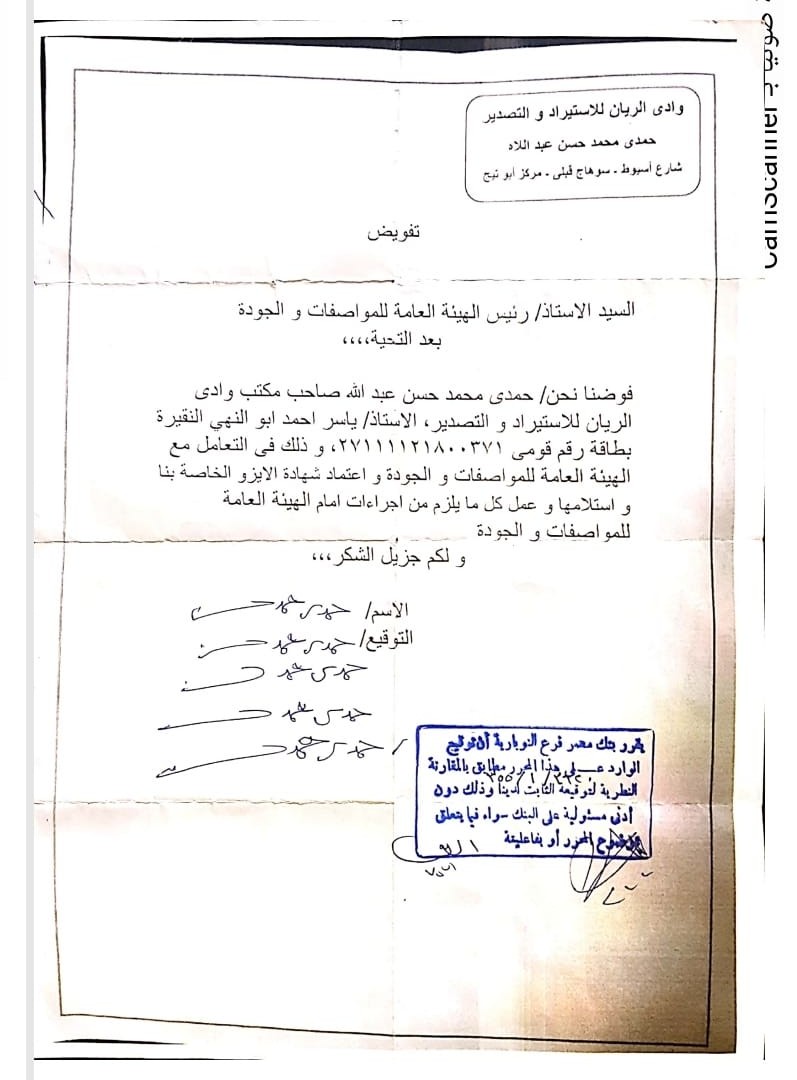 وادى الريان للاستيراد و التصدير
حمدى محمد حسن عبد اللاه
شارع أسيوط - سوهاج قبلى - مركز ابو تيج
تفويض
السيد الاستاذ/ رئيس الهيئة العامة للمواصفات و الجودة
بعد التحية،،،،
فوضنا نحن/ حمدى محمد حسن عبد الله صاحب مكتب وادى
الريان للاستيراد و التصدير، الاستاذ/ ياسر احمد ابو النهي النقيرة
بطاقة رقم قومى ٢٧١١١١٢١٨٠٠٣٧١، و ذلك فى التعامل مع
الهيئة العامة للمواصفات و الجودة و اعتماد شهادة الايزو الخاصة بنا
و استلامها و عمل كل ما يلزم من اجراءات امام الهيئة العامة
للمواصفات و الجودة
و لكم جزيل الشكر،،،
الاسم/ حمدى محمد حسن
التوقيع/ حمدى محمد حسن
حمدى محمد حسن
حمدى محمد حسن
حمدى محمد حسن
يقرر بنك مصر فرع النوبارية أن توقيع
الوارد على هذا المحرر مطابق بالمقارنة
النظرية لتوقيعة الثابت لدينا وذلك دون
أدنى مسئولية على البنك سواء فيما يتعلق
بموضوع المحرر أو بفاعليتة
CamScanner